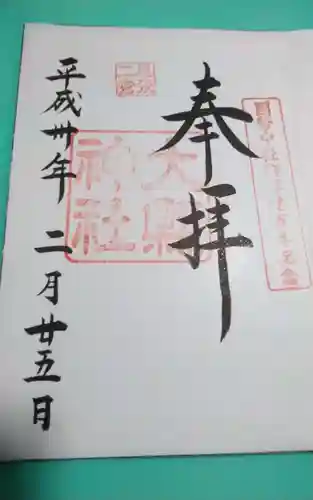 奉拝
大縣神社
平成卅年 二月廿五日